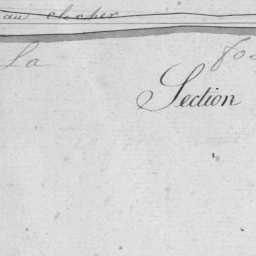 au clocher
La
Section